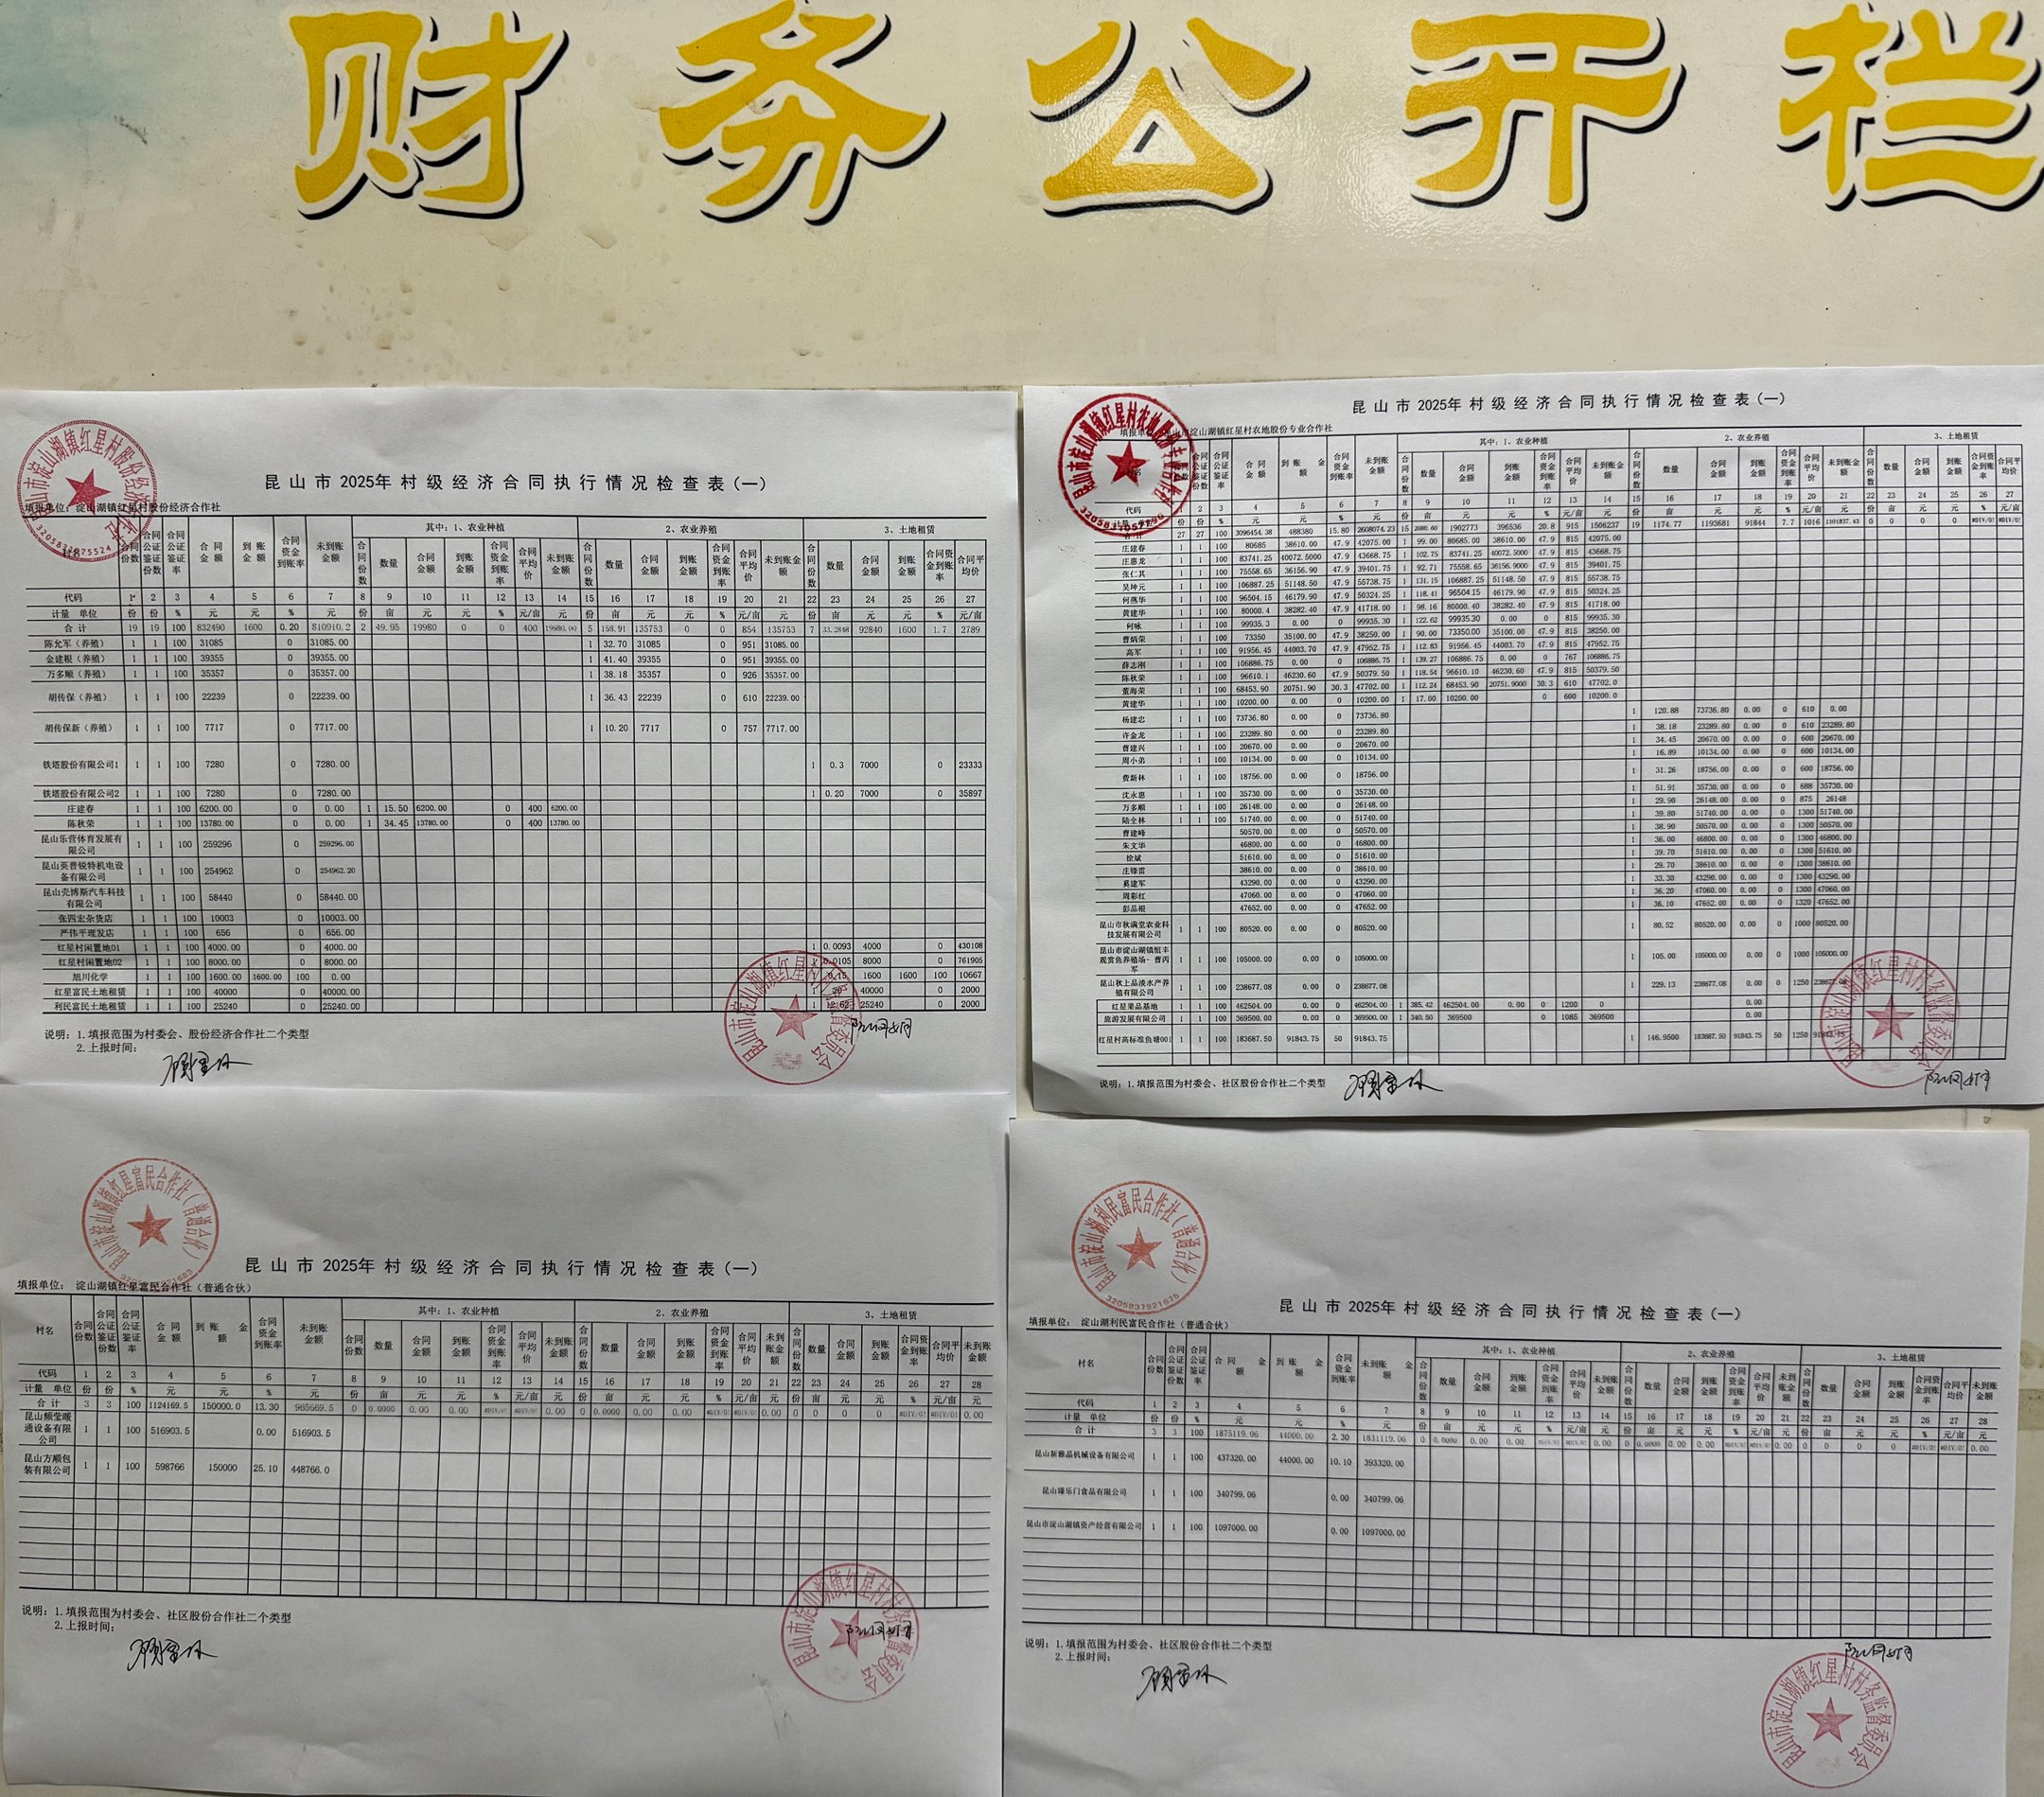 财务公开栏
昆山市2025年村级经济合同执行情况检查表(一)
填报单位：淀山湖镇红星村股份经济合作社
合同份数 合同公证鉴证份数 合同公证鉴证率 合同金额 到账金额 合同资金到账率 未到账金额 其中：1、农业种植 2、农业养殖 3、土地租赁
合同份数 数量 合同金额 到账金额 合同资金到账率 合同平均价 未到账金额 合同份数 数量 合同金额 到账金额 合同资金到账率 合同平均价 未到账金额 合同份数 数量 合同金额 到账金额 合同资金到账率 合同平均价
代码 1 2 3 4 5 6 7 8 9 10 11 12 13 14 15 16 17 18 19 20 21 22 23 24 25 26 27
计量 单位 份 份 % 元 元 % 元 份 亩 元 元 % 元/亩 元 份 亩 元 元 % 元/亩 元 份 亩 元 元 % 元/亩
合 计 19 19 100 832490 1600 0.20 810910.2 2 49.95 19980 0 0 400 5 158.91 135753 0 0 854 135753 7 92840 1600 1.7 2789
陈允军（养殖） 1 1 100 31085 0 31085.00 1 32.70 31085 0 951 31085.00
金建根（养殖） 1 1 100 39355 0 39355.00 1 41.40 39355 0 951 39355.00
万多顺（养殖） 1 1 100 35357 0 35357.00 1 38.18 35357 0 926 35357.00
胡传保（养殖） 1 1 100 22239 0 22239.00 1 36.43 22239 0 610 22239.00
胡传保新（养殖） 1 1 100 7717 0 7717.00 1 10.20 7717 0 757 7717.00
铁塔股份有限公司1 1 1 100 7280 0 7280.00 1 0.3 7000 0 23333
铁塔股份有限公司2 1 1 100 7280 0 7280.00 1 0.20 7000 0 35897
庄建春 1 1 100 6200.00 0 0.00 1 15.50 6200.00 0 400 6200.00
陈秋荣 1 1 100 13780.00 0 0.00 1 34.45 13780.00 0 400 13780.00
昆山乐营体育发展有限公司 1 1 100 259296 0 259296.00
昆山英普锐特机电设备有限公司 1 1 100 254962 0 254962.20
昆山壳博斯汽车科技有限公司 1 1 100 58440 0 58440.00
张四宏杂货店 1 1 100 10003 0 10003.00
严伟平理发店 1 1 100 656 0 656.00
红星村闲置地01 1 1 100 4000.00 0 4000.00 1 0.0093 4000 0 430108
红星村闲置地02 1 1 100 8000.00 0 8000.00 0.0105 8000 0 761905
旭川化学 1 1 100 1600.00 1600.00 100 0.00 0.15 1600 1600 100 10667
红星富民土地租赁 1 1 100 40000 0 40000.00 20 40000 0 2000
利民富民土地租赁 1 1 100 25240 0 25240.00 1 12.62 25240 0 2000
说明：1.填报范围为村委会、股份经济合作社二个类型
2.上报时间：
昆山市淀山湖镇红星村村务监督委员会
昆山市2025年村级经济合同执行情况检查表(一)
填报单位：昆山市淀山湖镇红星村农地股份专业合作社
昆山市淀山湖镇红星村农地股份专业合作社
其中：1、农业种植 2、农业养殖 3、土地租赁
代码 1 2 3 4 5 6 7 8 9 10 11 12 13 14 15 16 17 18 19 20 21 22 23 24 25 26 27
合计 27 27 100 3096454.38 488380 15.80 2608074.23 15 2080.60 1902773 396536 20.8 915 1506237 19 1174.77 1193681 91844 7.7 1016 1101837.43 0 0 0 0 #DIV/0! #DIV/0!
庄建春 1 1 100 80685 38610.00 47.9 42075.00 1 99.00 80685.00 38610.00 47.9 815 42075.00
庄惠龙 1 1 100 83741.25 40072.5000 47.9 43668.75 1 102.75 83741.25 40072.5000 47.9 815 43668.75
张仁其 1 1 100 75558.65 36156.90 47.9 39401.75 1 92.71 75558.65 36156.9000 47.9 815 39401.75
吴坤元 1 1 100 106887.25 51148.50 47.9 55738.75 1 131.15 106887.25 51148.50 47.9 815 55738.75
何燕华 1 1 100 96504.15 46179.90 47.9 50324.25 1 118.41 96504.15 46179.90 47.9 815 50324.25
黄建华 1 1 100 80000.4 38282.40 47.9 41718.00 1 98.16 80000.40 38282.40 47.9 815 41718.00
何咏 1 1 100 99935.3 0.00 0 99935.30 1 122.62 99935.30 0.00 0 815 99935.30
曹炳荣 1 1 100 73350 35100.00 47.9 38250.00 1 90.00 73350.00 35100.00 47.9 815 38250.00
高军 1 1 100 91956.45 44003.70 47.9 47952.75 1 112.83 91956.45 44003.70 47.9 815 47952.75
薛志刚 1 1 100 106886.75 0.00 0 106886.75 1 139.27 106886.75 0.00 0 767 106886.75
陈秋荣 1 1 100 96610.1 46230.60 47.9 50379.50 1 118.54 96610.10 46230.60 47.9 815 50379.50
董海荣 1 1 100 68453.90 20751.90 30.3 47702.00 1 112.24 68453.90 20751.9000 30.3 610 47702.0
黄建华 1 1 100 10200.00 0.00 0 10200.00 1 17.00 10200.00 0 600 10200.0
杨建忠 1 1 100 73736.80 0.00 0 73736.80 1 120.88 73736.80 0.00 0 610 0.00
许金龙 1 1 100 23289.80 0.00 0 23289.80 1 38.18 23289.80 0.00 0 610 23289.80
曹建兴 1 1 100 20670.00 0.00 0 20670.00 1 34.45 20670.00 0.00 0 600 20670.00
周小弟 1 1 100 10134.00 0.00 0 10134.00 1 16.89 10134.00 0.00 0 600 10134.00
费新林 1 1 100 18756.00 0.00 0 18756.00 1 31.26 18756.00 0.00 0 600 18756.00
沈永惠 1 1 100 35730.00 0.00 0 35730.00 1 51.91 35730.00 0.00 0 688 35730.00
万多顺 1 1 100 26148.00 0.00 0 26148.00 1 29.90 26148.00 0.00 0 875 26148
陆全林 1 1 100 51740.00 0.00 0 51740.00 1 39.80 51740.00 0.00 0 1300 51740.00
曹建峰 50570.00 0.00 0 50570.00 1 38.90 50570.00 0.00 0 1300 50570.00
朱文华 46800.00 0.00 0 46800.00 1 36.00 46800.00 0.00 0 1300 46800.00
徐斌 51610.00 0.00 0 51610.00 1 39.70 51610.00 0.00 0 1300 51610.00
庄锋雷 38610.00 0.00 0 38610.00 1 29.70 38610.00 0.00 0 1300 38610.00
奚建军 43290.00 0.00 0 43290.00 1 33.30 43290.00 0.00 0 1300 43290.00
周彩红 47060.00 0.00 0 47060.00 1 36.20 47060.00 0.00 0 1300 47060.00
彭品根 47652.00 0.00 0 47652.00 1 36.10 47652.00 0.00 0 1320 47652.00
昆山市秋满堂农业科技发展有限公司 1 1 100 80520.00 0.00 0 80520.00 1 80.52 80520.00 0.00 0 1000 80520.00
昆山市淀山湖镇恒丰观赏鱼养殖场-曹丙军 1 1 100 105000.00 0.00 0 105000.00 1 105.00 105000.00 0.00 0 1000 105000.00
昆山秋上品淡水产养殖有限公司 1 1 100 238677.08 0.00 0 238677.08 1 229.13 238677.08 0.00 0 1250 238677.08
红星果品基地 1 1 100 462504.00 0.00 0 462504.00 1 385.42 462504.00 0.00 0 1200 0 0.00
旅游发展有限公司 1 1 100 369500.00 0.00 0 369500.00 1 340.50 369500 0 1085 369500 0.00
红星村高标准鱼塘001 1 1 100 183687.50 91843.75 50 91843.75 1 146.9500 183687.50 91843.75 50 1250 91843.75
说明：1.填报范围为村委会、社区股份合作社二个类型
昆山市淀山湖镇红星富民合作社（普通合伙）
昆山市2025年村级经济合同执行情况检查表(一)
填报单位： 淀山湖镇红星富民合作社（普通合伙）
村名 合同份数 合同公证鉴证份数 合同公证鉴证率 合同金额 到账金额 合同资金到账率 未到账金额 其中：1、农业种植 2、农业养殖 3、土地租赁
代码 1 2 3 4 5 6 7 8 9 10 11 12 13 14 15 16 17 18 19 20 21 22 23 24 25 26 27 28
计量 单位 份 份 % 元 元 % 元 份 亩 元 元 % 元/亩 元 份 亩 元 元 % 元/亩 元 份 亩 元 元 % 元/亩 元
合 计 3 3 100 1124169.5 150000.0 13.30 965669.5 0 0.0000 0.00 0.00 #DIV/0! #DIV/0! 0.00 0 0.0000 0.00 0.00 #DIV/0! #DIV/0! 0.00 0 0 0 0 #DIV/0! #DIV/0! 0.00
昆山频莹暖通设备有限公司 1 1 100 516903.5 0.00 516903.5
昆山方顺包装有限公司 1 1 100 598766 150000 25.10 448766.0
说明：1.填报范围为村委会、社区股份合作社二个类型
2.上报时间：
昆山市淀山湖镇红星村村务监督委员会
昆山市淀山湖利民富民合作社（普通合伙）
3205837921675
昆山市2025年村级经济合同执行情况检查表(一)
填报单位： 淀山湖利民富民合作社（普通合伙）
村名 合同份数 合同公证鉴证份数 合同公证鉴证率 合同金额 到账金额 合同资金到账率 未到账金额 其中：1、农业种植 2、农业养殖 3、土地租赁
代码 1 2 3 4 5 6 7 8 9 10 11 12 13 14 15 16 17 18 19 20 21 22 23 24 25 26 27 28
计量 单位 份 份 % 元 元 % 元 份 亩 元 元 % 元/亩 元 份 亩 元 元 % 元/亩 元 份 亩 元 元 % 元/亩 元
合 计 3 3 100 1875119.06 44000.00 2.30 1831119.06 0 0.0000 0.00 0.00 #DIV/0! #DIV/0! 0.00 0 0.0000 0.00 0.00 #DIV/0! #DIV/0! 0.00 0 0 0 0 #DIV/0! #DIV/0! 0.00
昆山新雅品机械设备有限公司 1 1 100 437320.00 44000.00 10.10 393320.00
昆山臻乐门食品有限公司 1 1 100 340799.06 0.00 340799.06
昆山市淀山湖镇资产经营有限公司 1 1 100 1097000.00 0.00 1097000.00
说明：1.填报范围为村委会、社区股份合作社二个类型
2.上报时间：
昆山市淀山湖镇红星村村务监督委员会